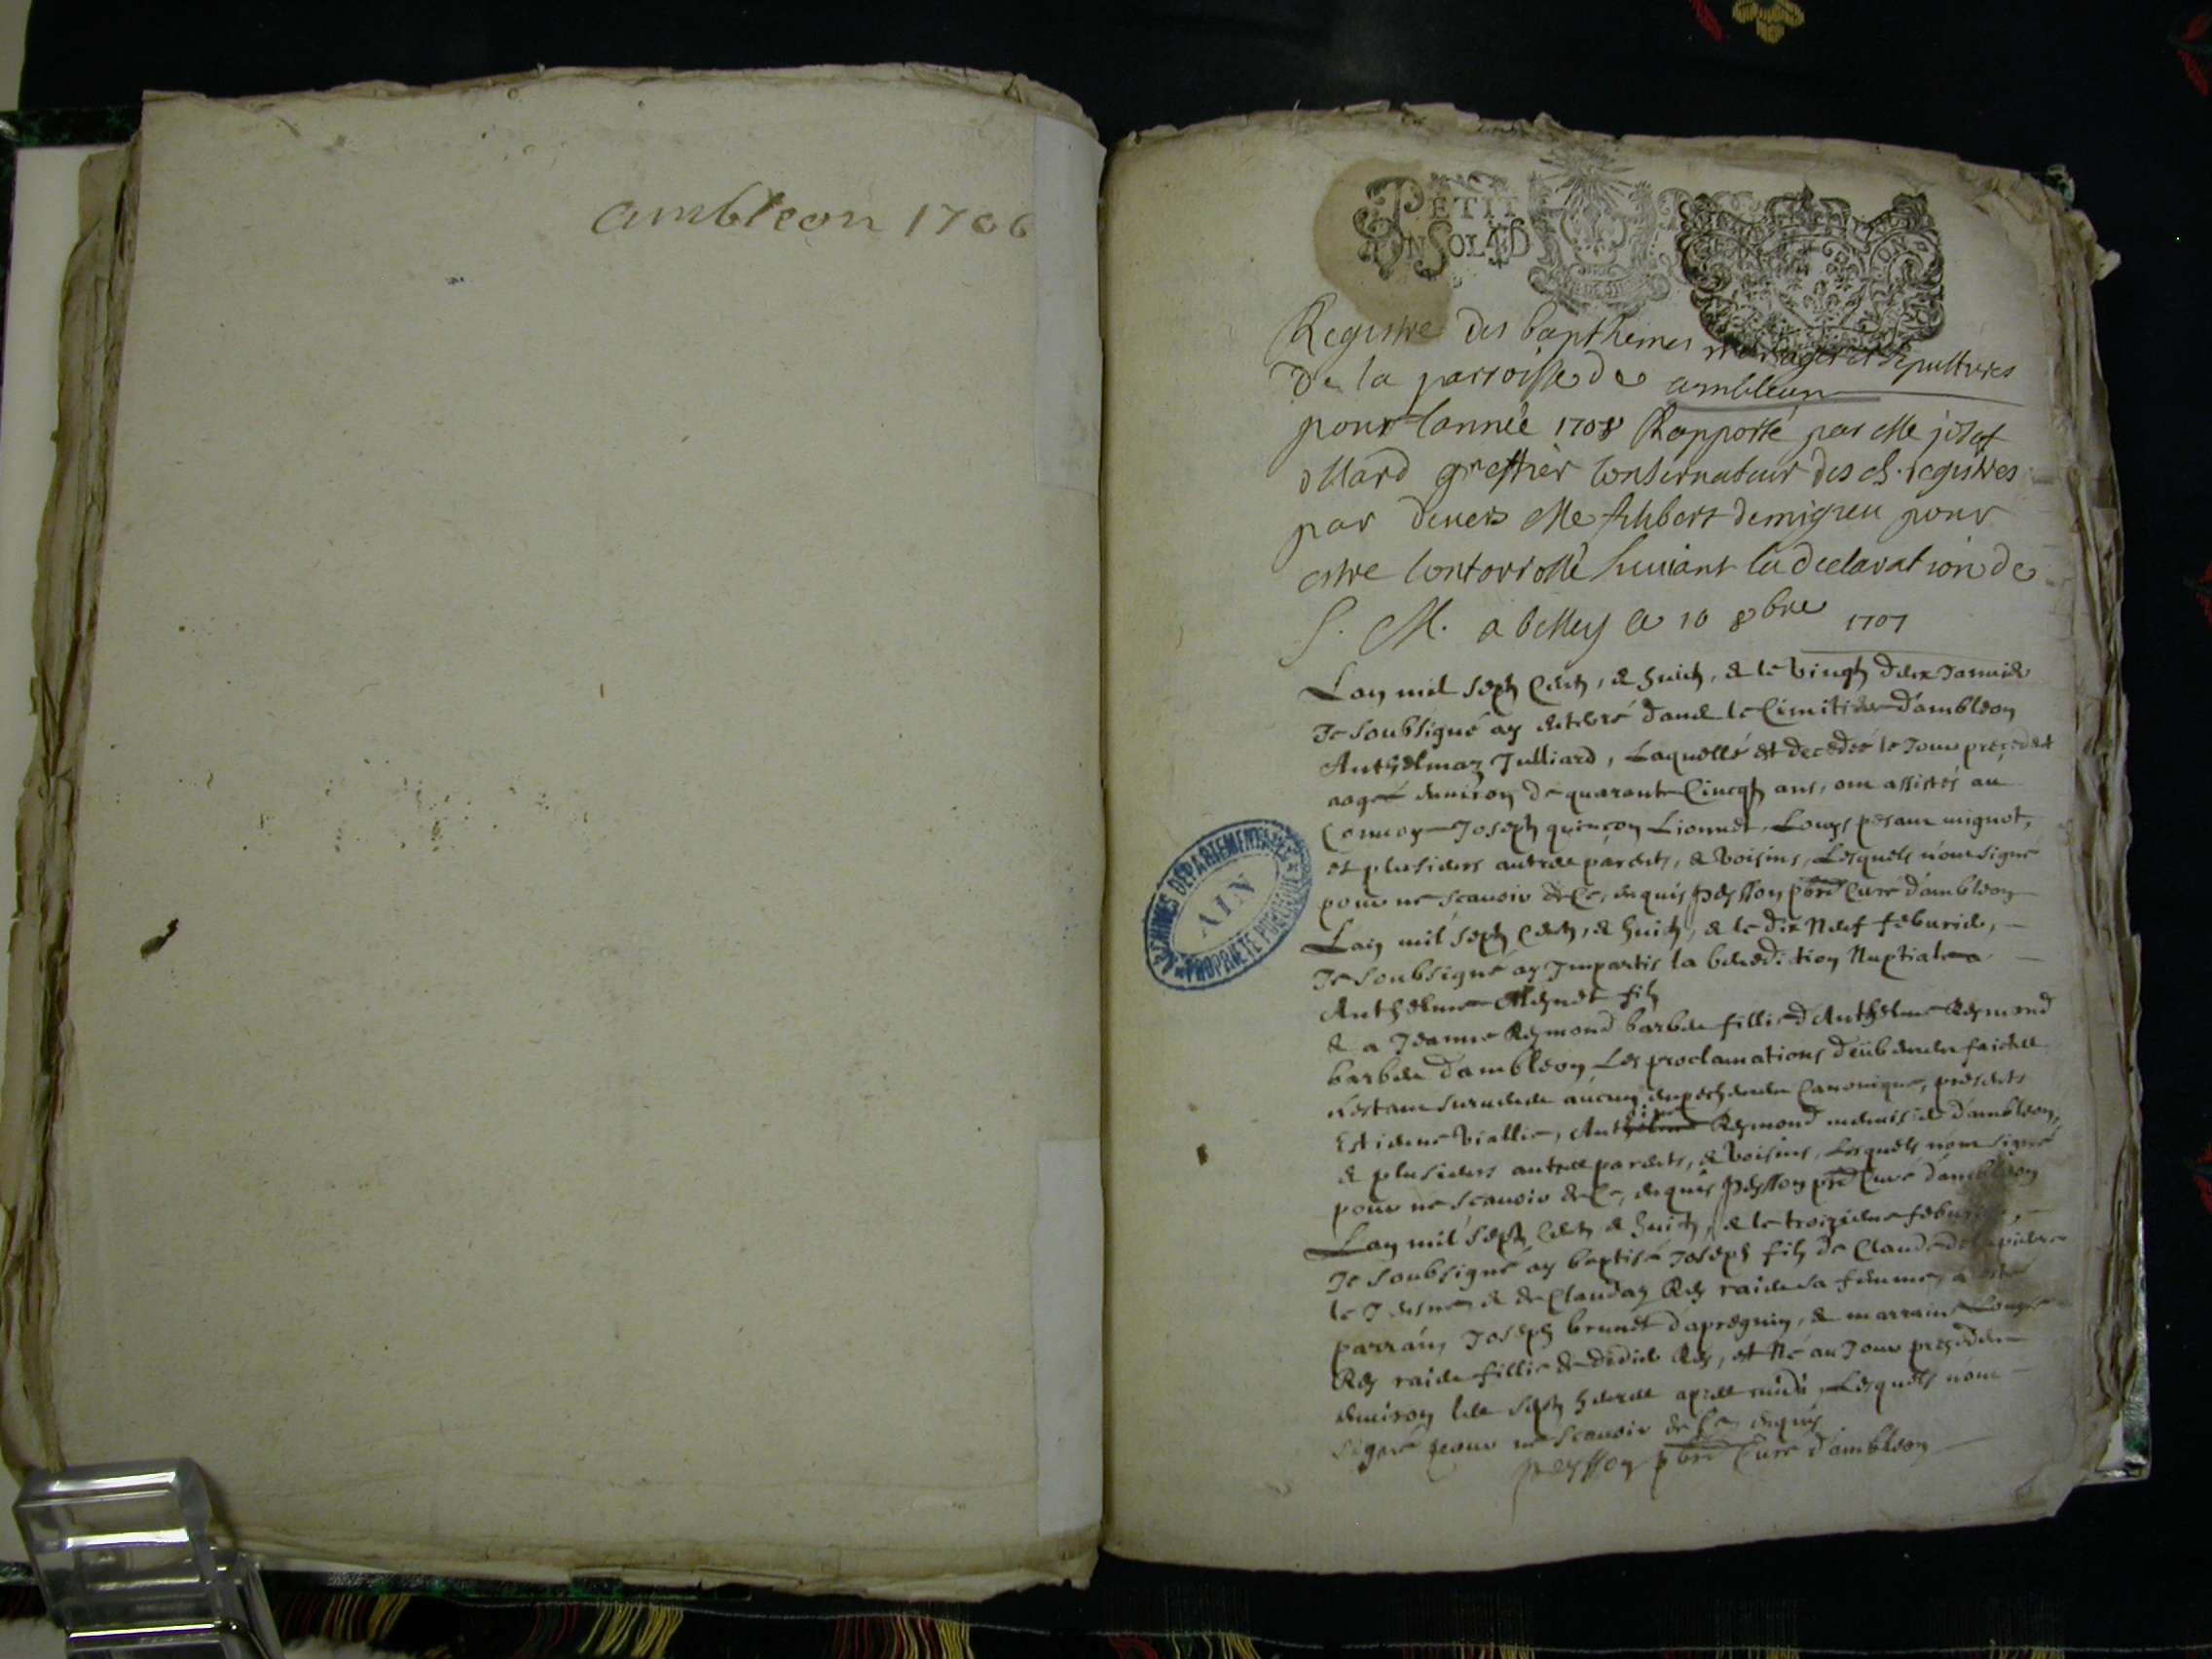 ambleon 1706
PETIT
UN SOL 4D
Registre des bapthemes mariages et sepultures
De la parroisse de ambleon
pour lannée 1708 Rapporté par Me josef
greffier Conservateur des registres
par devers Me filibert demigieu pour
estre Contorrollé suivant la declaration de
S. M. a belley ce 10 8bre 1707
Lan mil sept cent, & huict, & le vingt deux Janvier
Je soubsigné ay enterré dans le Cimitier d'ambleon
Anthelmaz Julliard, Laquelle est decedée le Jour precedent
aagée environ de quarante Cincqt ans, ont assistés au
Convoy Joseph quinçon Lionnet, Louys pesant mignot,
et plusieurs autres parents, & voisins, Lesquels n'ont signé
pour ne scavoir de ce, enquis peysson pbre Curé d'ambleon
Lan mil sept cent, & huict, & le dix neuf febvrier,
Je soubsigné ay Impartis la benediction Nuptiale a
Anthelme Meynet fils
& a Jeanne Reymond barbier fillie d'Anthelme Reymond
barbier d'ambleon Les proclamations deubement faictes
n'estant survenue aucung empechement Canonique, presents
Estienne Viallie, Anthelme Reymond menuisier d'ambleon,
& plusieurs autres parents, & voisins, Lesquels n'ont signé
pour ne scavoir de ce, enquis peysson pbre Curé d'ambleon
Lan mil sept cent & huict, & le troizieme febvrier,
Je soubsigné ay baptisé Joseph fils de Claude
le Jeune, & de Claudaz Rey raide sa femme, a esté
parrain, Joseph brunet d'apregnin, & marraine Louyse
Rey raide fillie de didier Rey, est Né au Jour precedent
environ les sept heures apres midi, Lesquels n'ont
signé pour ne scavoir de ce, enquis
peysson pbre Curé d'ambleon
ARCHIVES DEPARTEMENTALES
AIN
PROPRIETE PUBLIQUE